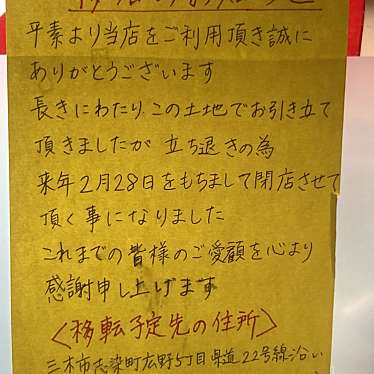 平素より当店をご利用頂き誠に
ありがとうございます
長きにわたりこの土地でお引き立て
頂きましたが 立ち退きの為
来年2月28日をもちまして閉店させて
頂く事になりました
これまでの皆様のご愛顧を心より
感謝申し上げます
〈移転予定先の住所〉
三木市志染町広野5丁目県道22号線沿い